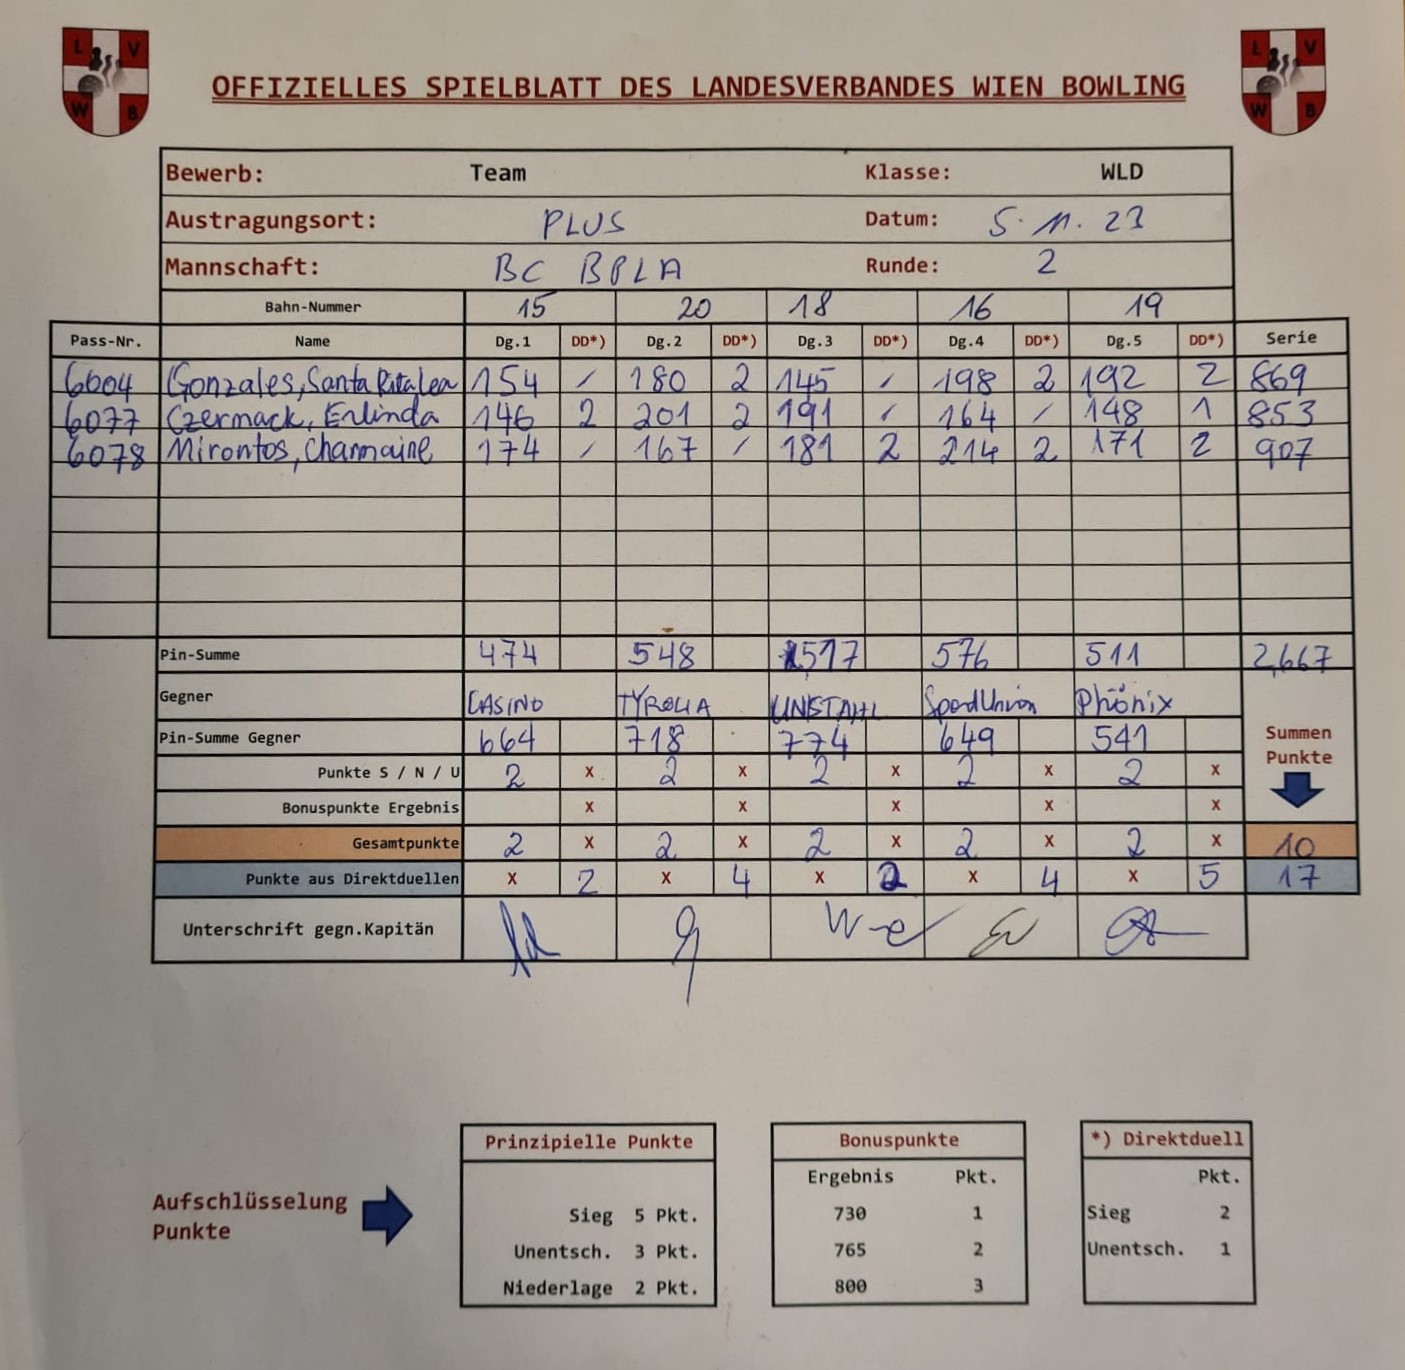 L V W B
L V W B
OFFIZIELLES SPIELBLATT DES LANDESVERBANDES WIEN BOWLING
Bewerb: Team Klasse: WLD
Austragungsort: PLUS Datum: 5.11.23
Mannschaft: BC BBLA Runde: 2
Bahn-Nummer 15 20 18 16 19
Pass-Nr. Name Dg.1 DD*) Dg.2 DD*) Dg.3 DD*) Dg.4 DD*) Dg.5 DD*) Serie
6604 Gonzales, Santa Rita Lea 154 / 180 2 145 / 198 2 192 2 869
6077 Czermack, Erlinda 146 2 201 2 191 / 164 / 148 1 853
6078 Mirontos, Charmaine 174 / 167 / 181 2 214 2 171 2 907
Pin-Summe 474 548 517 576 511 2,667
Gegner CASINO TYROLIA UNSTAHL SpordUnion Phönix
Pin-Summe Gegner 664 718 774 649 541
Summen
Punkte
Punkte S / N / U 2 x 2 x 2 x 2 x 2 x
Bonuspunkte Ergebnis x x x x x
Gesamtpunkte 2 x 2 x 2 x 2 x 2 x 10
Punkte aus Direktduellen x 2 x 4 x 2 x 4 x 5 17
Unterschrift gegn.Kapitän
Aufschlüsselung
Punkte
Prinzipielle Punkte
Sieg 5 Pkt.
Unentsch. 3 Pkt.
Niederlage 2 Pkt.
Bonuspunkte
Ergebnis Pkt.
730 1
765 2
800 3
*) Direktduell
Pkt.
Sieg 2
Unentsch. 1